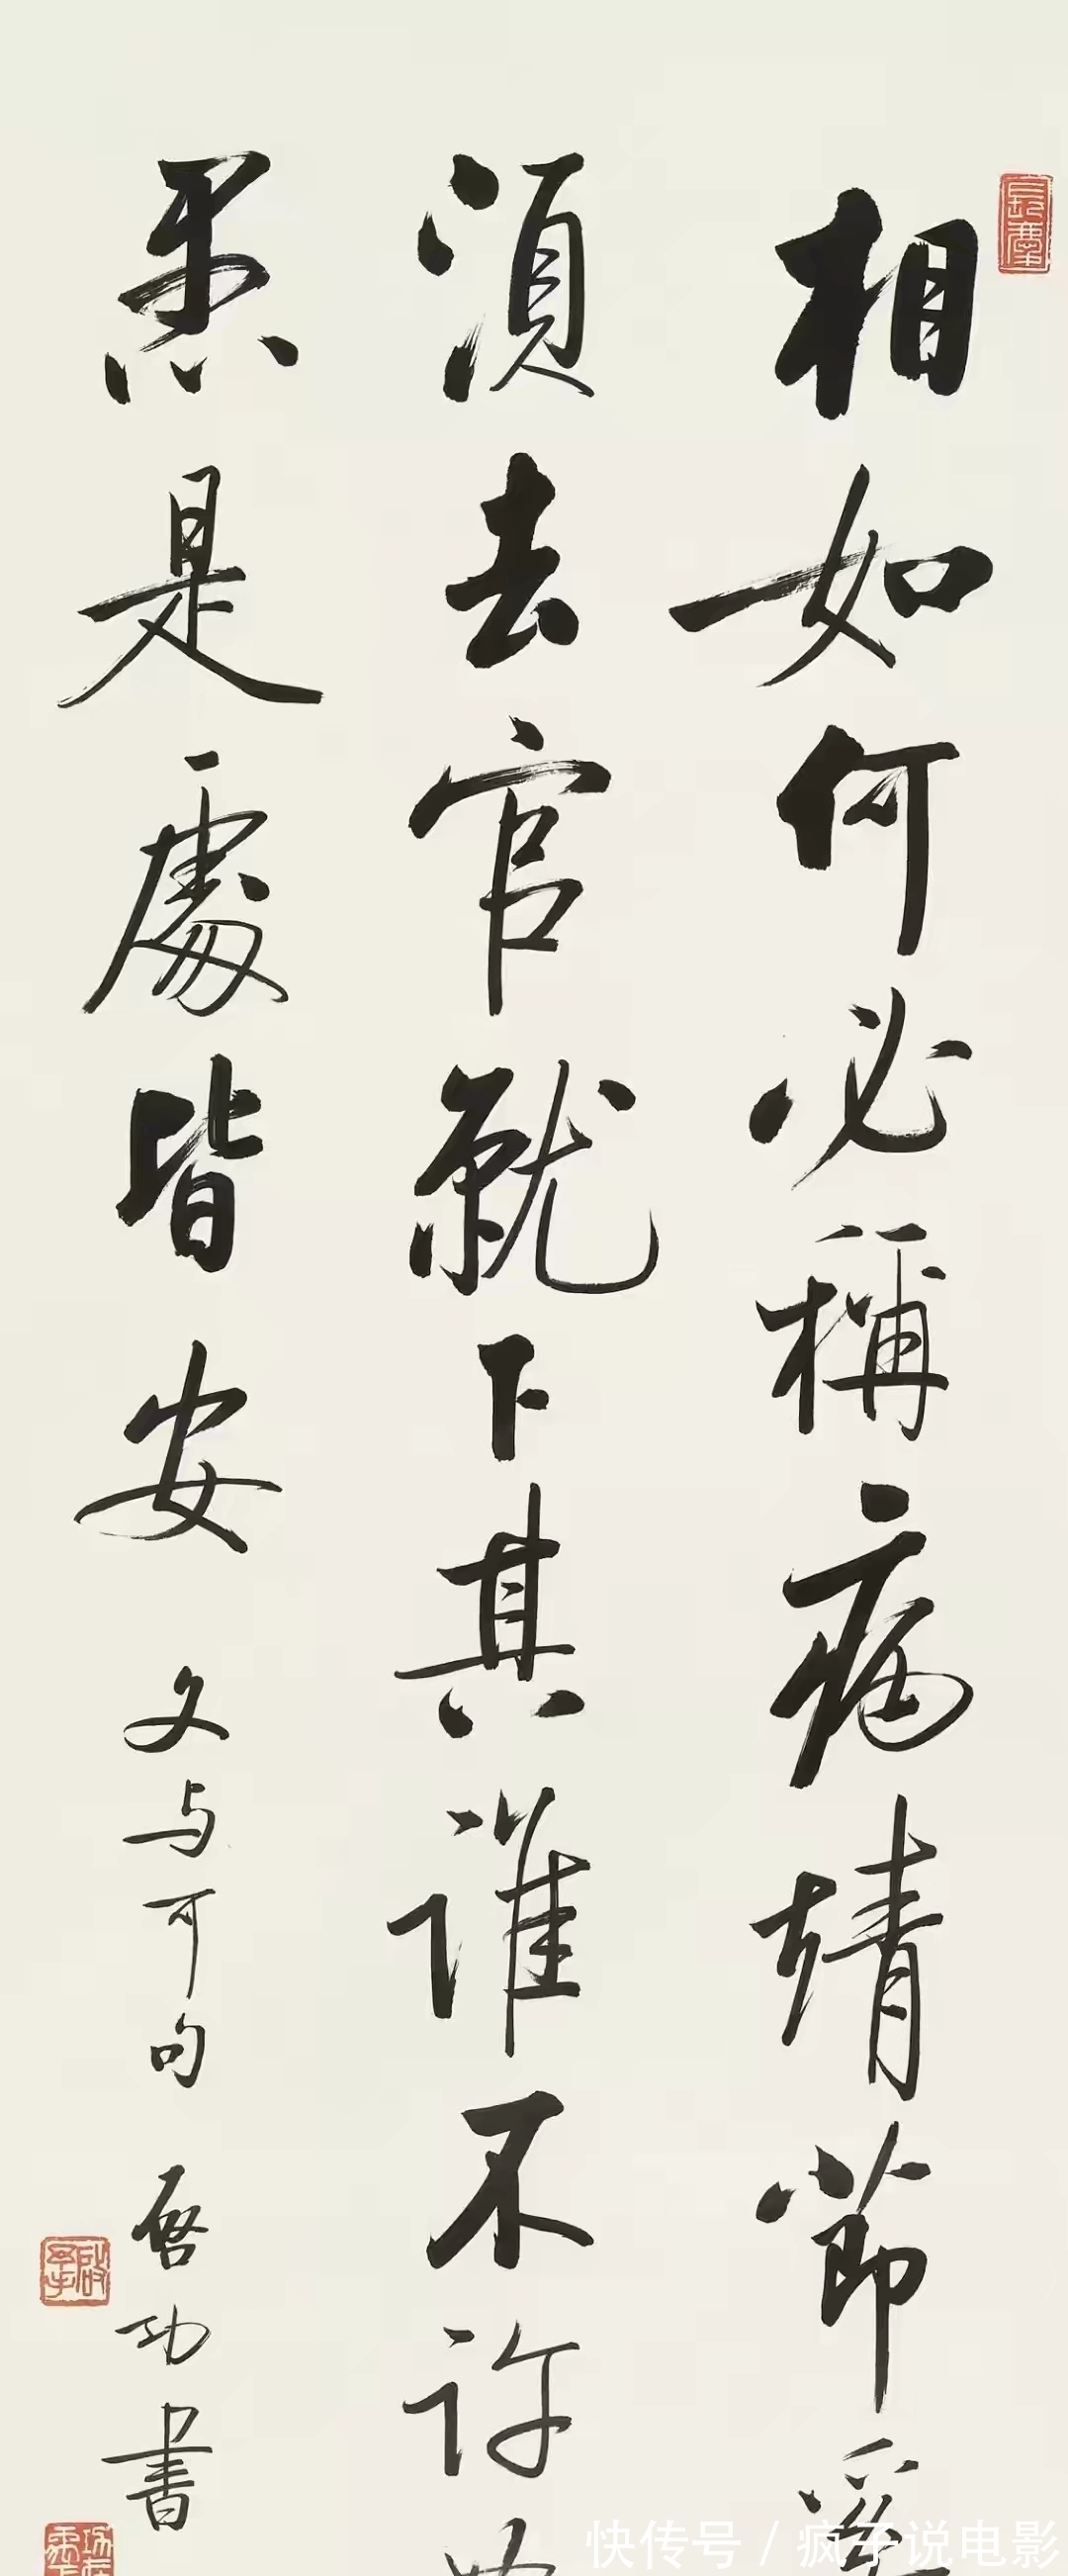 相如何必稱病靖節奚
須去官就下其誰不許
愚是處皆安
文与可句
啓功書
快传号 / 疯子说电影